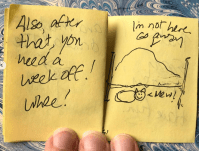 Also, after
that, you
need a
week off!
whee!
Im not here
Go away